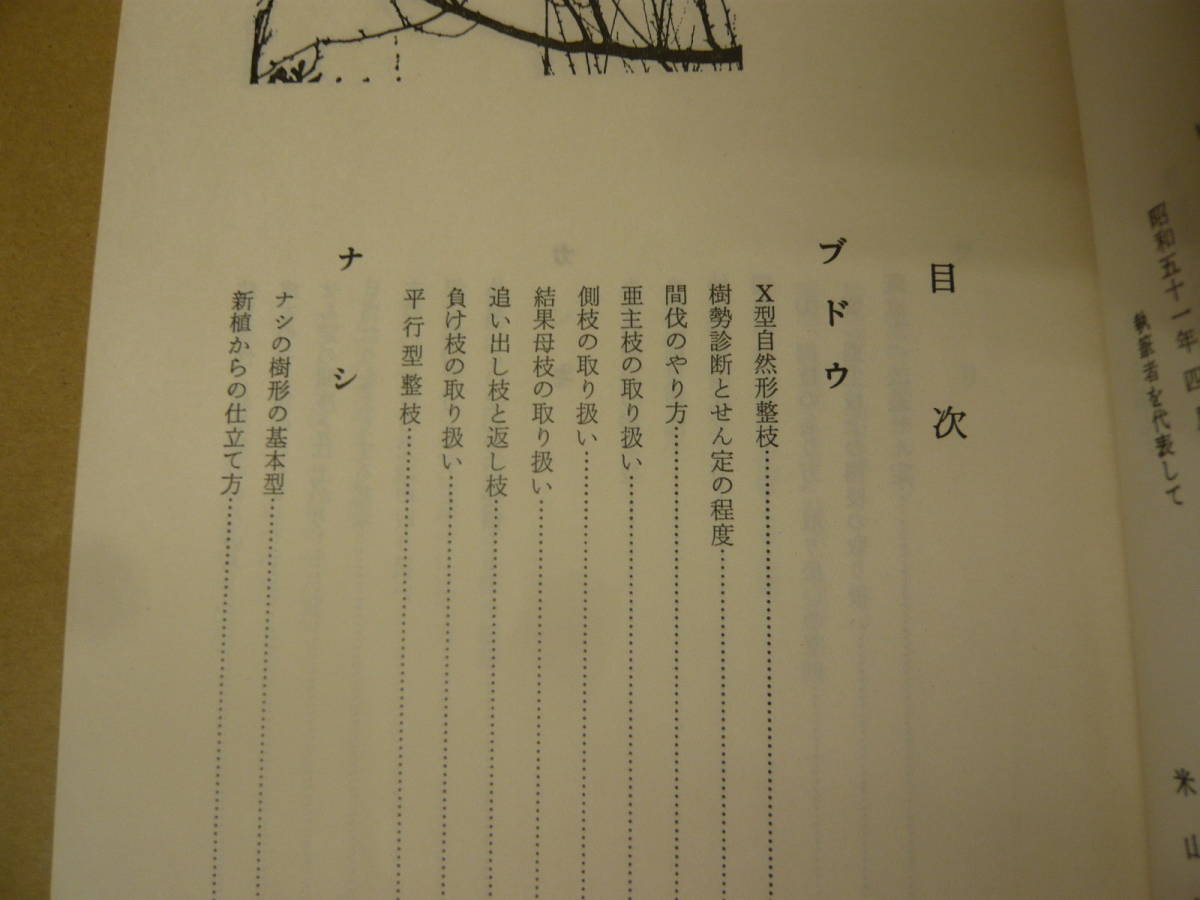 昭和五十一年四
執筆者を代表して
米山
目次
ブドウ
X型自然形整枝
樹勢診断とせん定の程度
間伐のやり方
亜主枝の取り扱い
側枝の取り扱い
結果母枝の取り扱い
追い出し枝と返し枝
負け枝の取り扱い
平行型整枝
ナシ
ナシの樹形の基本型
新植からの仕立て方